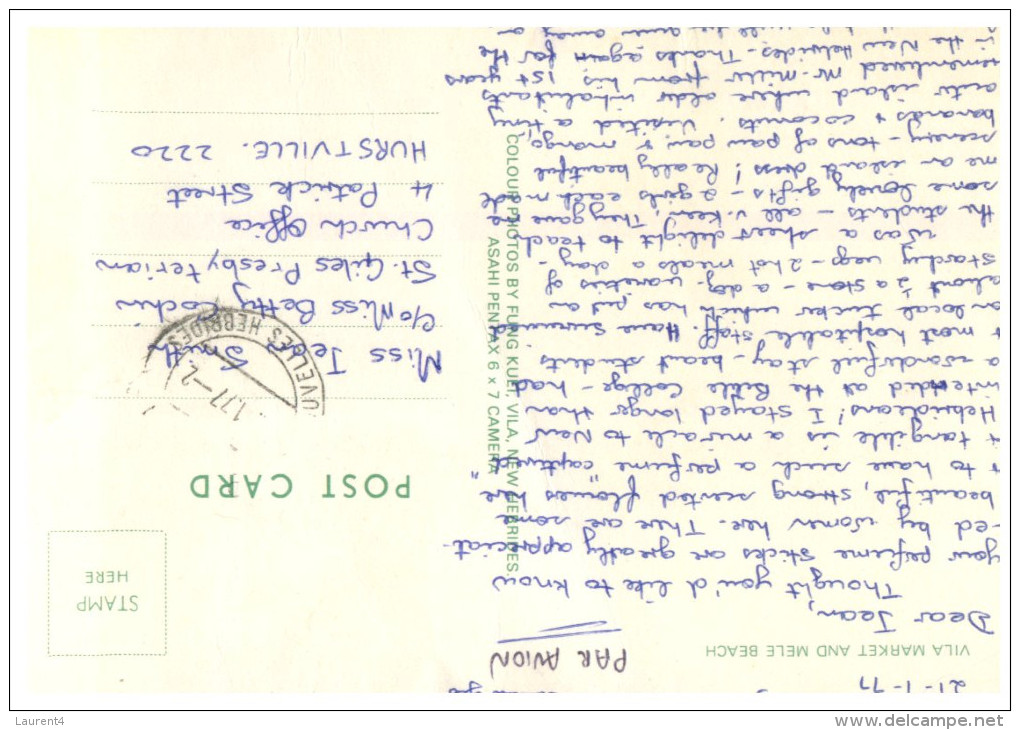 21-1-77
VILA MARKET AND MELE BEACH
PAR AVION
Dear Jean,
Thought you'd like to know
your perfume sticks are greatly appreciat-
-ed by women here. There are some
beautiful, strong scented "flowers here"
& to have such a perfume captived
& tangible is a miracle to New
Hebrideans! I stayed longer than
intended at the Bible College - had
a wonderful stay - beaut students
& most hospitable staff. Have survived
on local tucker which has put on
about ½ a stone - a doz. varieties of
starchy vegs - 2 hot meals a day -
was a sheer delight to teach
the students - all v. keen. They gave
some lovely gifts - 2 girls each made
me an island dress! Really beautiful
scenery - tons of paw paw & mango,
bananas & coconuts. Visited a tiny
outer island where older inhabitants
remembered Mr. Miller from his 1st years
in the New Hebrides. Thanks again for the
COLOUR PHOTOS BY FUNG KUEI, VILA, NEW HEBRIDES,
ASAHI PENTAX 6 x 7 CAMERA
STAMP
HERE
POST CARD
1.77-2
NOUVELLES HEBRIDES
Miss Jean Smith
c/o Miss Betty Cochin
St. Giles Presbyterian
Church Office
4 Patrick Street
HURSTVILLE. 2220
Laurent4
www.delcampe.net